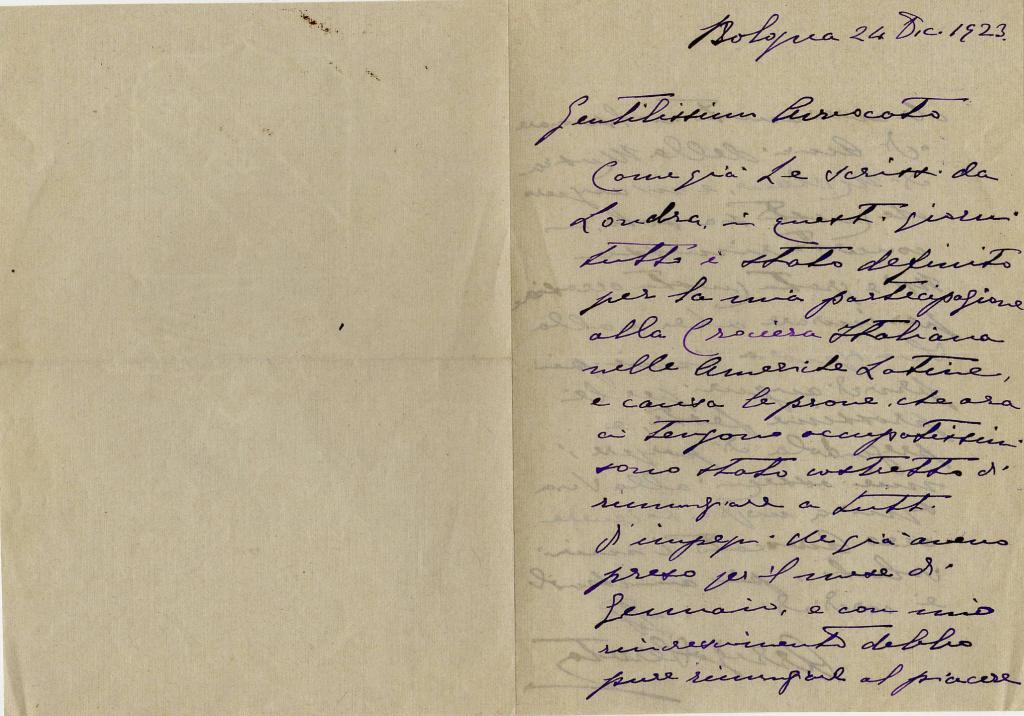 Bologna 24 Dic. 1923.
Gentilissimo Avvocato
Come già Le scrissi da
Londra, in questi giorni
tutto è stato definito
per la mia partecipazione
alla Crociera Italiana
nelle Americhe Latine,
e causa le prove che ora
ci tengono occupatissimi
sono stato costretto di
rinunziare a tutti
gl'impegni che già avevo
preso per il mese di
Gennaio, e con mio
rincrescimento debbo
pure rinunziare al piacere